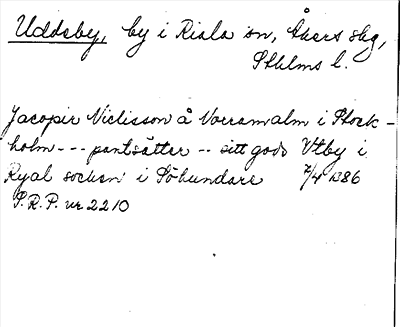 Uddeby, by i Riala sn, Åkers skg,
Sthlms l.
Jacoper Niclisson å Norramalm i Stock-
holm --- pantsätter -- sitt gods Vtby i
Ryal socken i Söhundare 7/4 1386
S.R.P. nr 2210